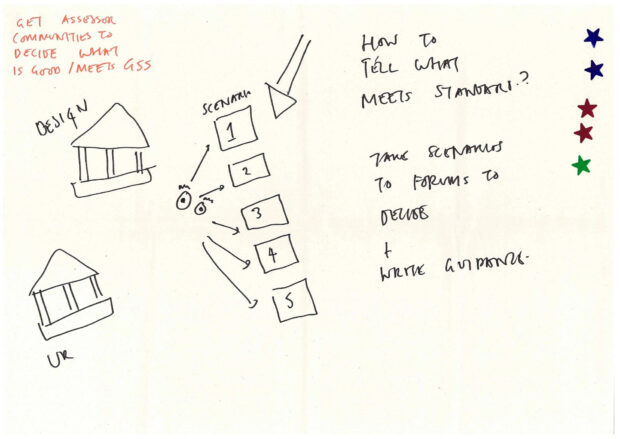 GET ASSESSOR
COMMUNITIES TO
DECIDE WHAT
IS GOOD / MEETS GSS
DESIGN
SCENARIO
1
2
3
4
5
UR
HOW TO
TELL WHAT
MEETS STANDARD?
TAKE SCENARIOS
TO FORUMS TO
DECIDE
+
WRITE GUIDANCE.